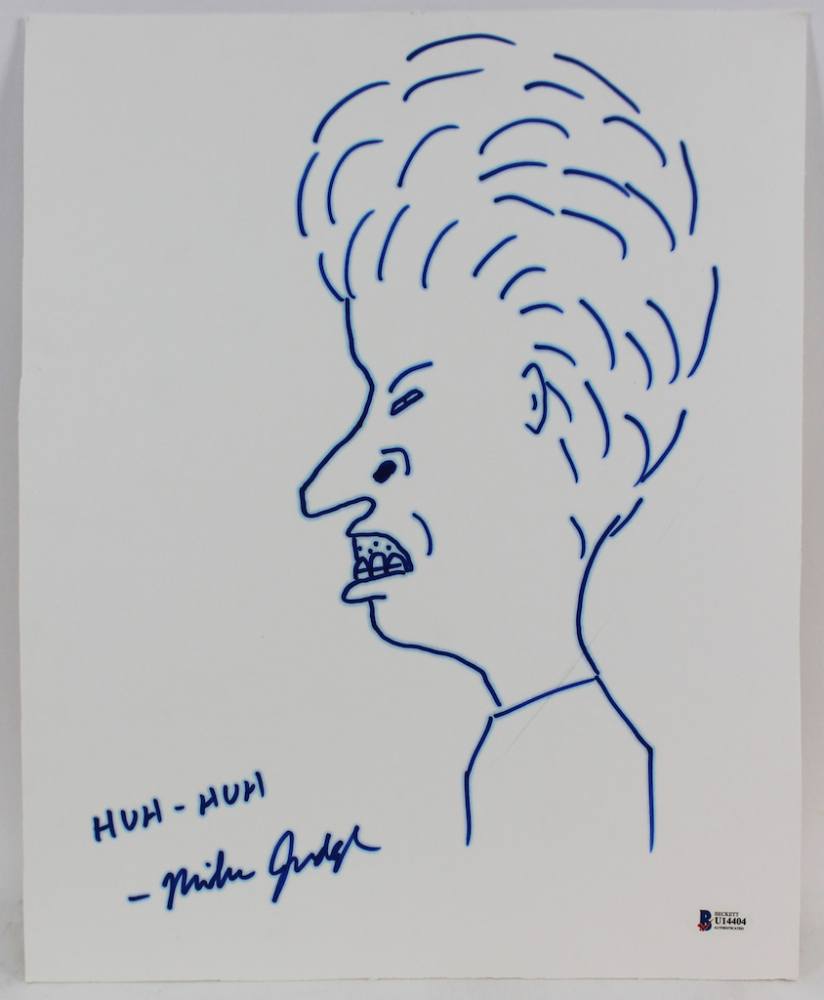 HUH - HUH
- Mike Judge
BECKETT
U14404
AUTHENTICATED